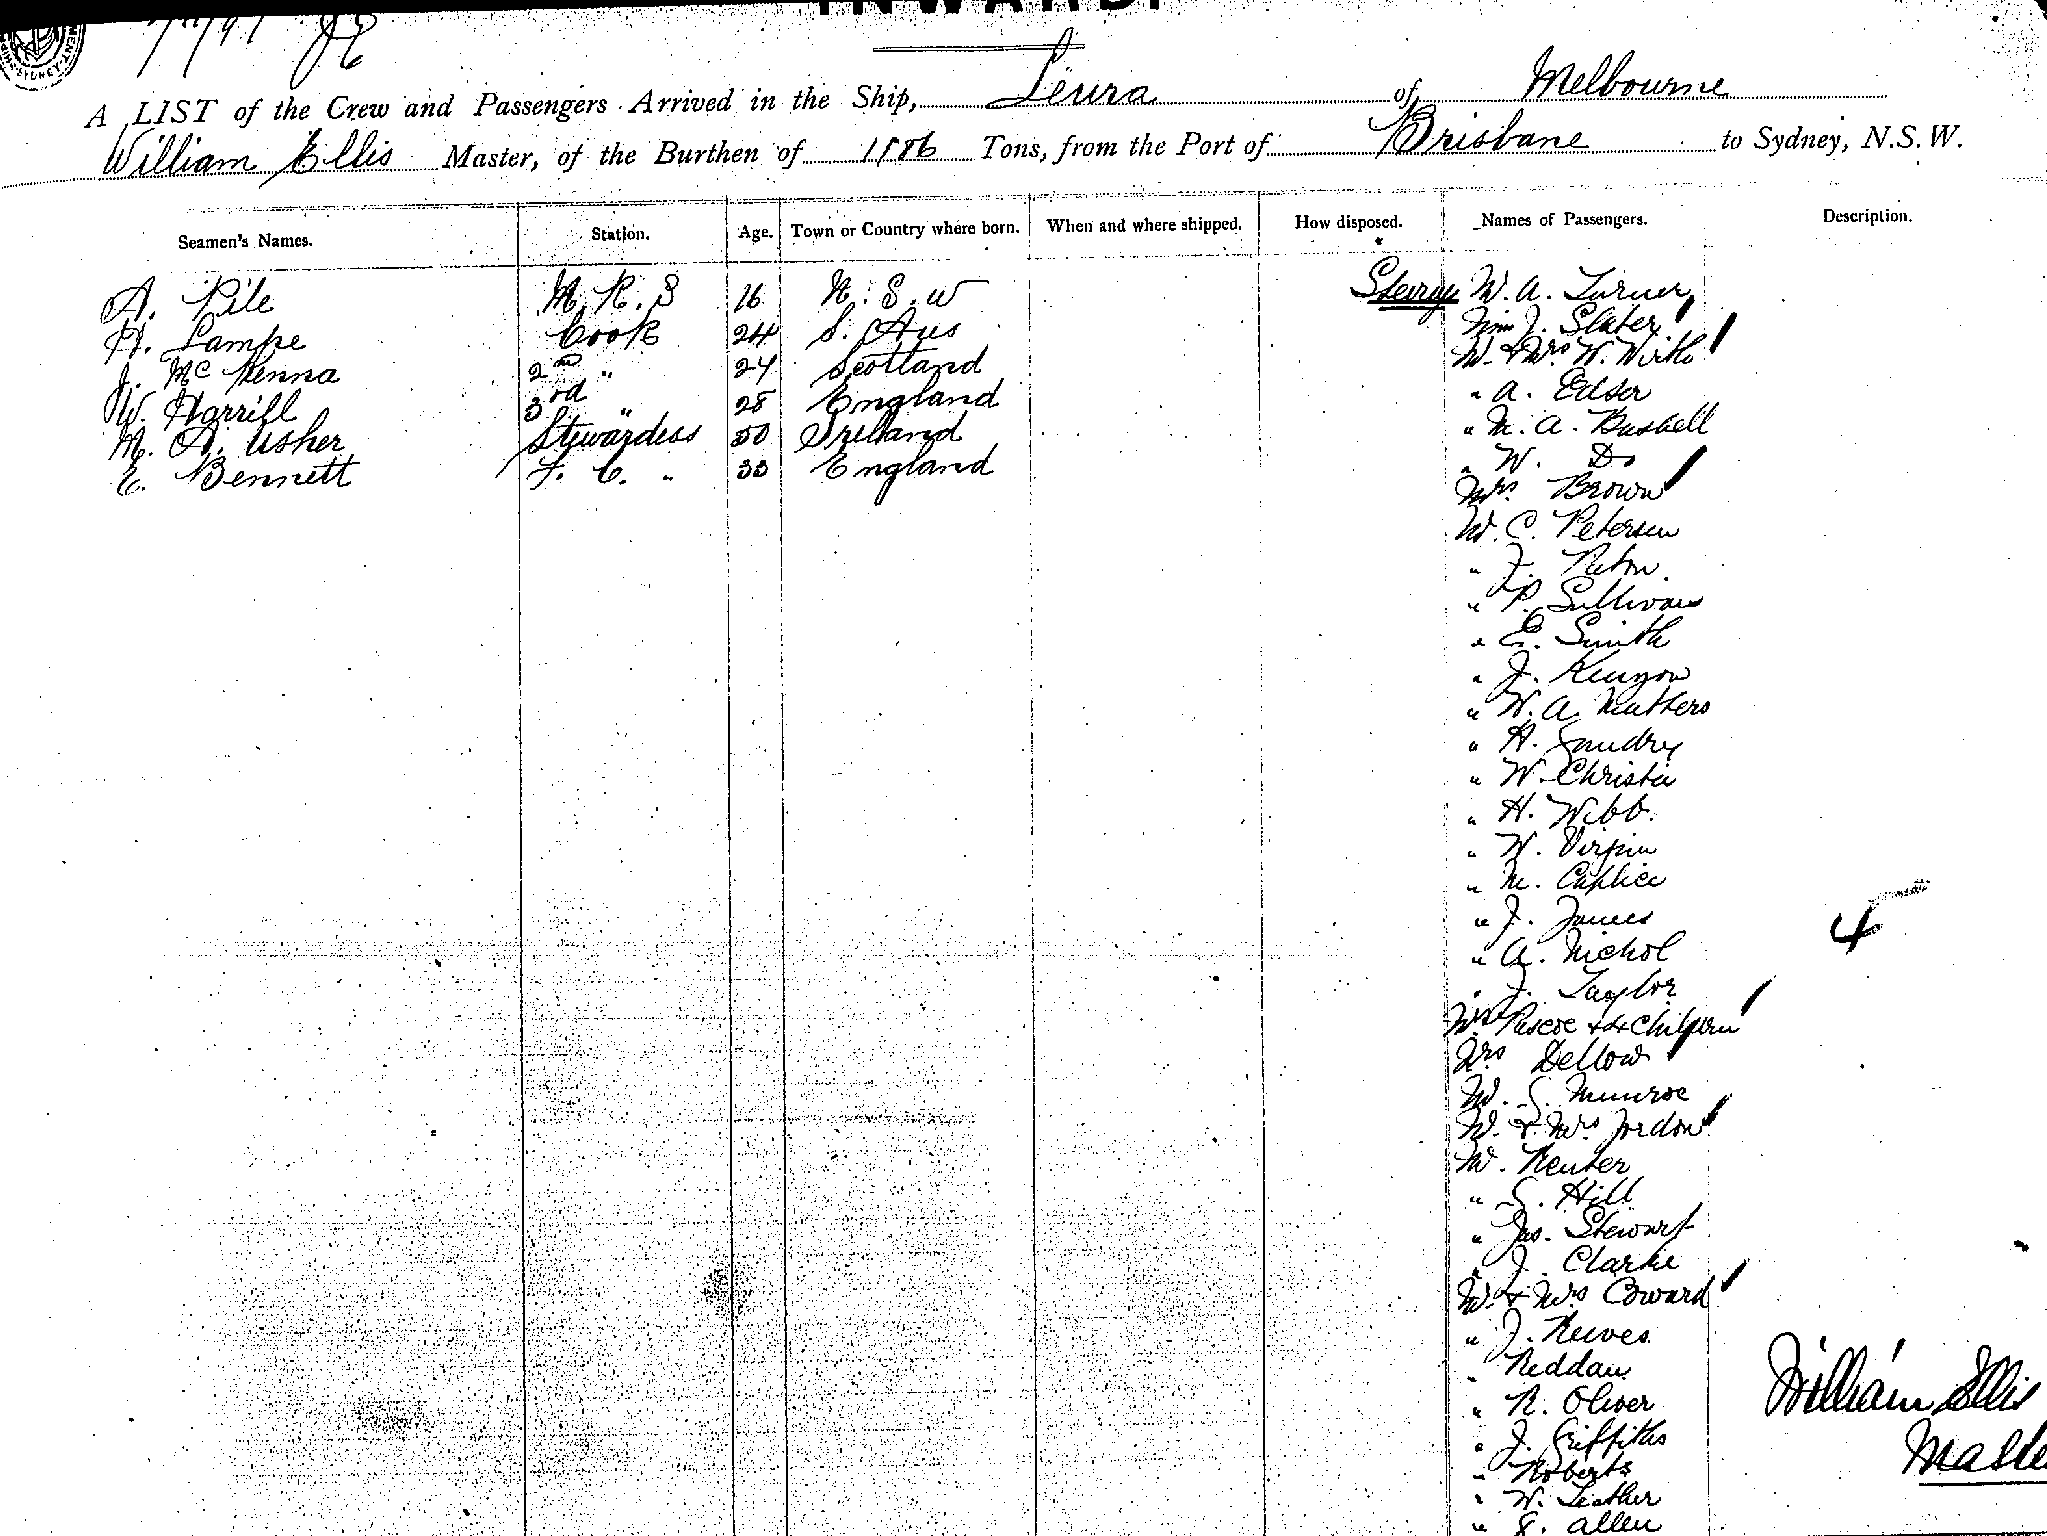 INWARD.
A LIST of the Crew and Passengers Arrived in the Ship, Leura of Melbourne
William Ellis Master, of the Burthen of 1186 Tons, from the Port of Brisbane to Sydney, N.S.W.
Seamen's Names. Station. Age. Town or Country where born. When and where shipped. How disposed. Names of Passengers. Description.
A. Pile M. R. S 16 N. S. W Steerage W. A. Turner
H. Lampe Cook 24 S. Aus J. Slater
J. Mc Kenna 2nd " 24 Scotland M. & Mrs W. Wirth
W. Harrill 3rd " 28 England " A. Edser
M. A. Usher Stewardess 50 Ireland " M. A. Bushell
E. Bennett F. C. " 33 England " W. Do
Mrs Brown
M. C. Petersen
" J.
" P. Sullivan
" E. Smith
" J. Kenyon
" W. A.
" H. Gaudry
" W. Christie
" H. Webb.
" W. Virgin
" M. Caplice
" J. James
" A. Nichol
4
" J. Taylor
Mrs Pascoe & 4 Children
Mrs Dellow
M. G. Munroe
M. & Mrs Jordon
M. Reuter
" G. Hill
" Jas. Stewart
" J. Clarke
M. & Mrs Coward
" J. Reeves
" Reddan
" R. Oliver
William Ellis
" J. Griffiths
Maste
" Roberts
" W. Leather
" G. Allen